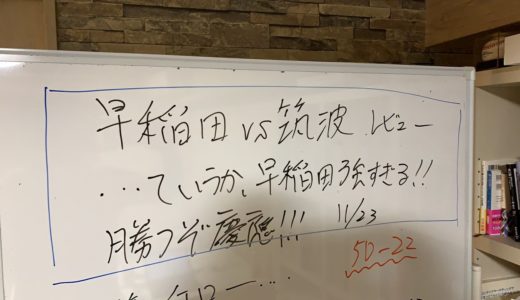 早稲田 vs 筑波 レビュー
...ていうか、早稲田強すぎる!!
勝つぞ慶應!!! 11/23
50-22